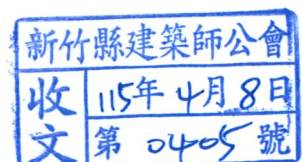 新竹縣建築師公會
收文
115年4月8日
第0405號